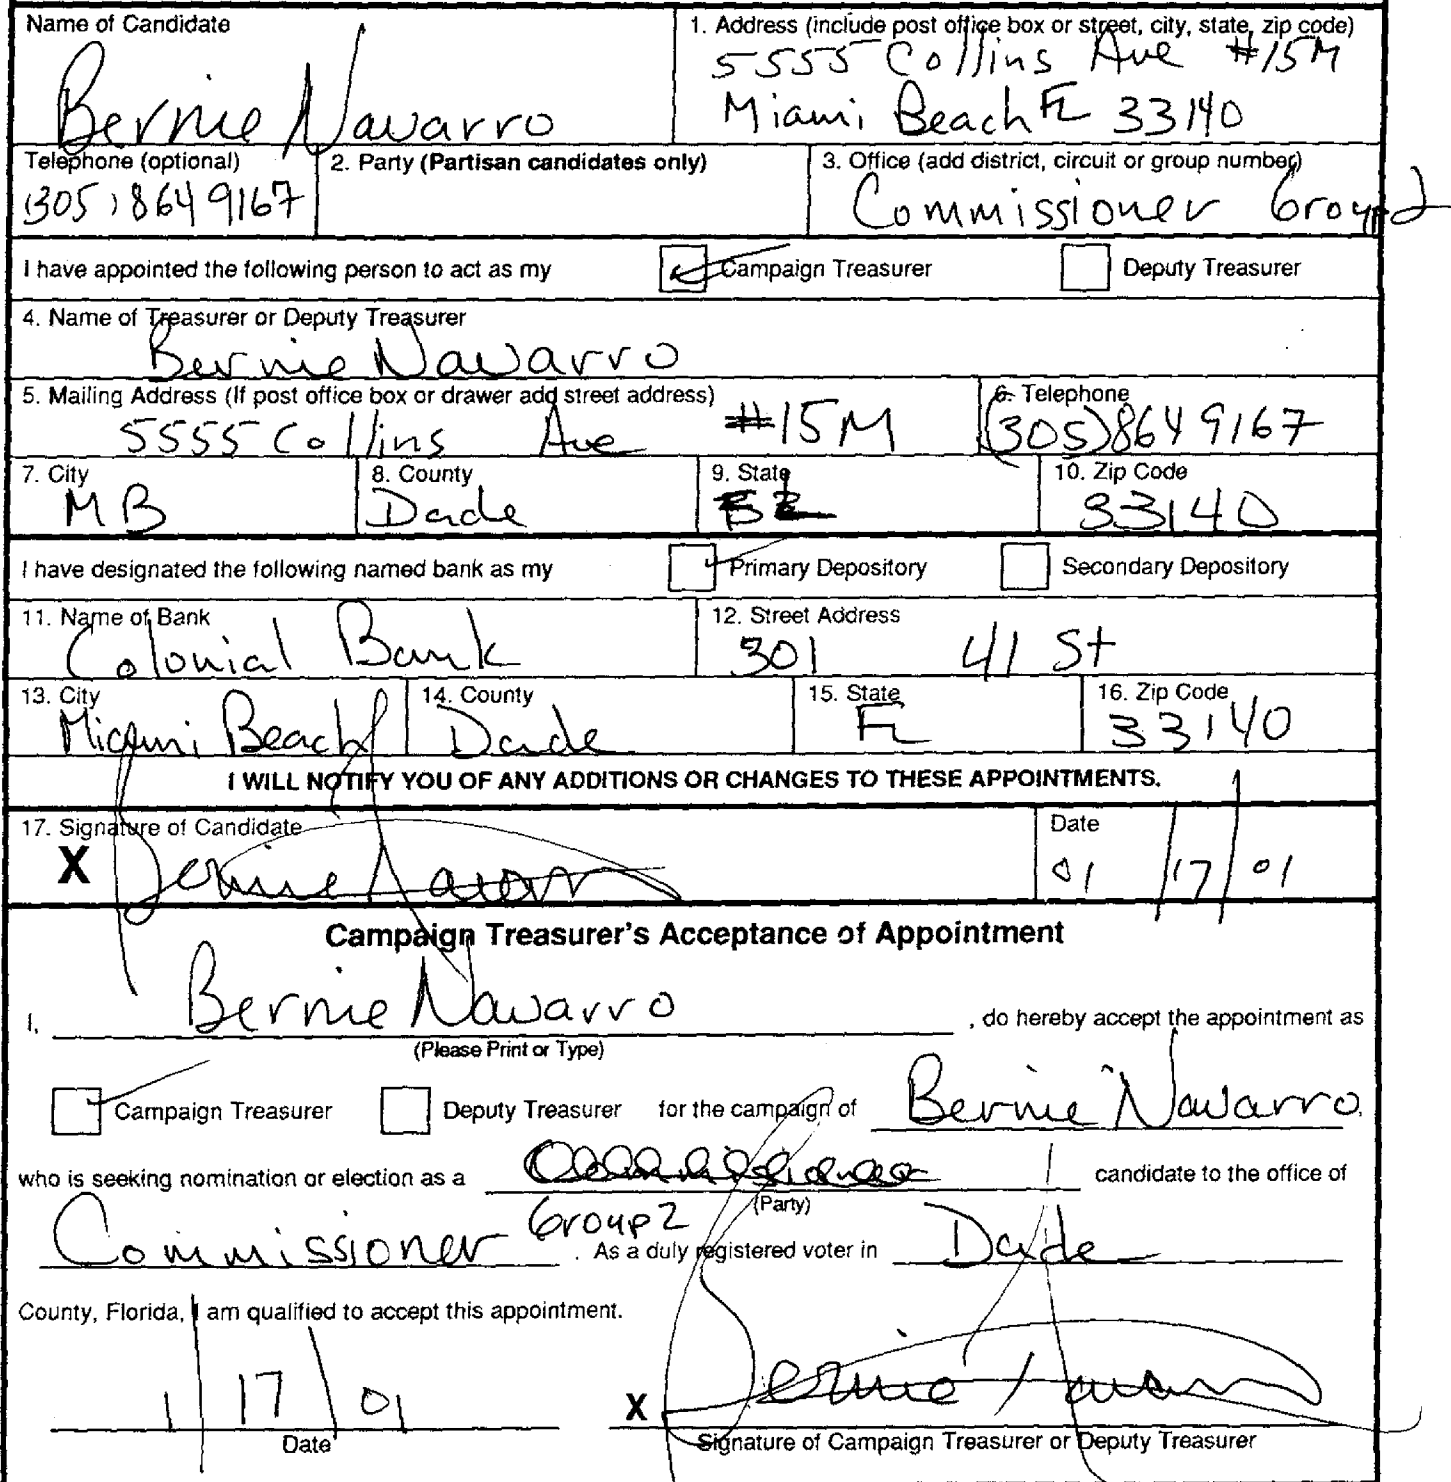 Name of Candidate
Bernie Navarro
1. Address (include post office box or street, city, state, zip code)
5555 Collins Ave #15M
Miami Beach FL 33140
Telephone (optional)
(305) 864 9167
2. Party (Partisan candidates only)
3. Office (add district, circuit or group number)
Commissioner Group 2
I have appointed the following person to act as my Campaign Treasurer Deputy Treasurer
4. Name of Treasurer or Deputy Treasurer
Bernie Navarro
5. Mailing Address (If post office box or drawer add street address)
5555 Collins Ave #15M
6. Telephone
(305) 864 9167
7. City
MB
8. County
Dade
9. State
10. Zip Code
33140
I have designated the following named bank as my Primary Depository Secondary Depository
11. Name of Bank
Colonial Bank
12. Street Address
301 41 St
13. City
Miami Beach
14. County
Dade
15. State
FL
16. Zip Code
33140
I WILL NOTIFY YOU OF ANY ADDITIONS OR CHANGES TO THESE APPOINTMENTS.
17. Signature of Candidate
X Bernie Navarro
Date
01/17/01
Campaign Treasurer's Acceptance of Appointment
I, Bernie Navarro , do hereby accept the appointment as
(Please Print or Type)
Campaign Treasurer Deputy Treasurer for the campaign of Bernie Navarro,
who is seeking nomination or election as a candidate to the office of
(Party)
Commissioner Group 2 . As a duly registered voter in Dade
County, Florida, I am qualified to accept this appointment.
1/17/01
X Bernie Navarro
Date
Signature of Campaign Treasurer or Deputy Treasurer